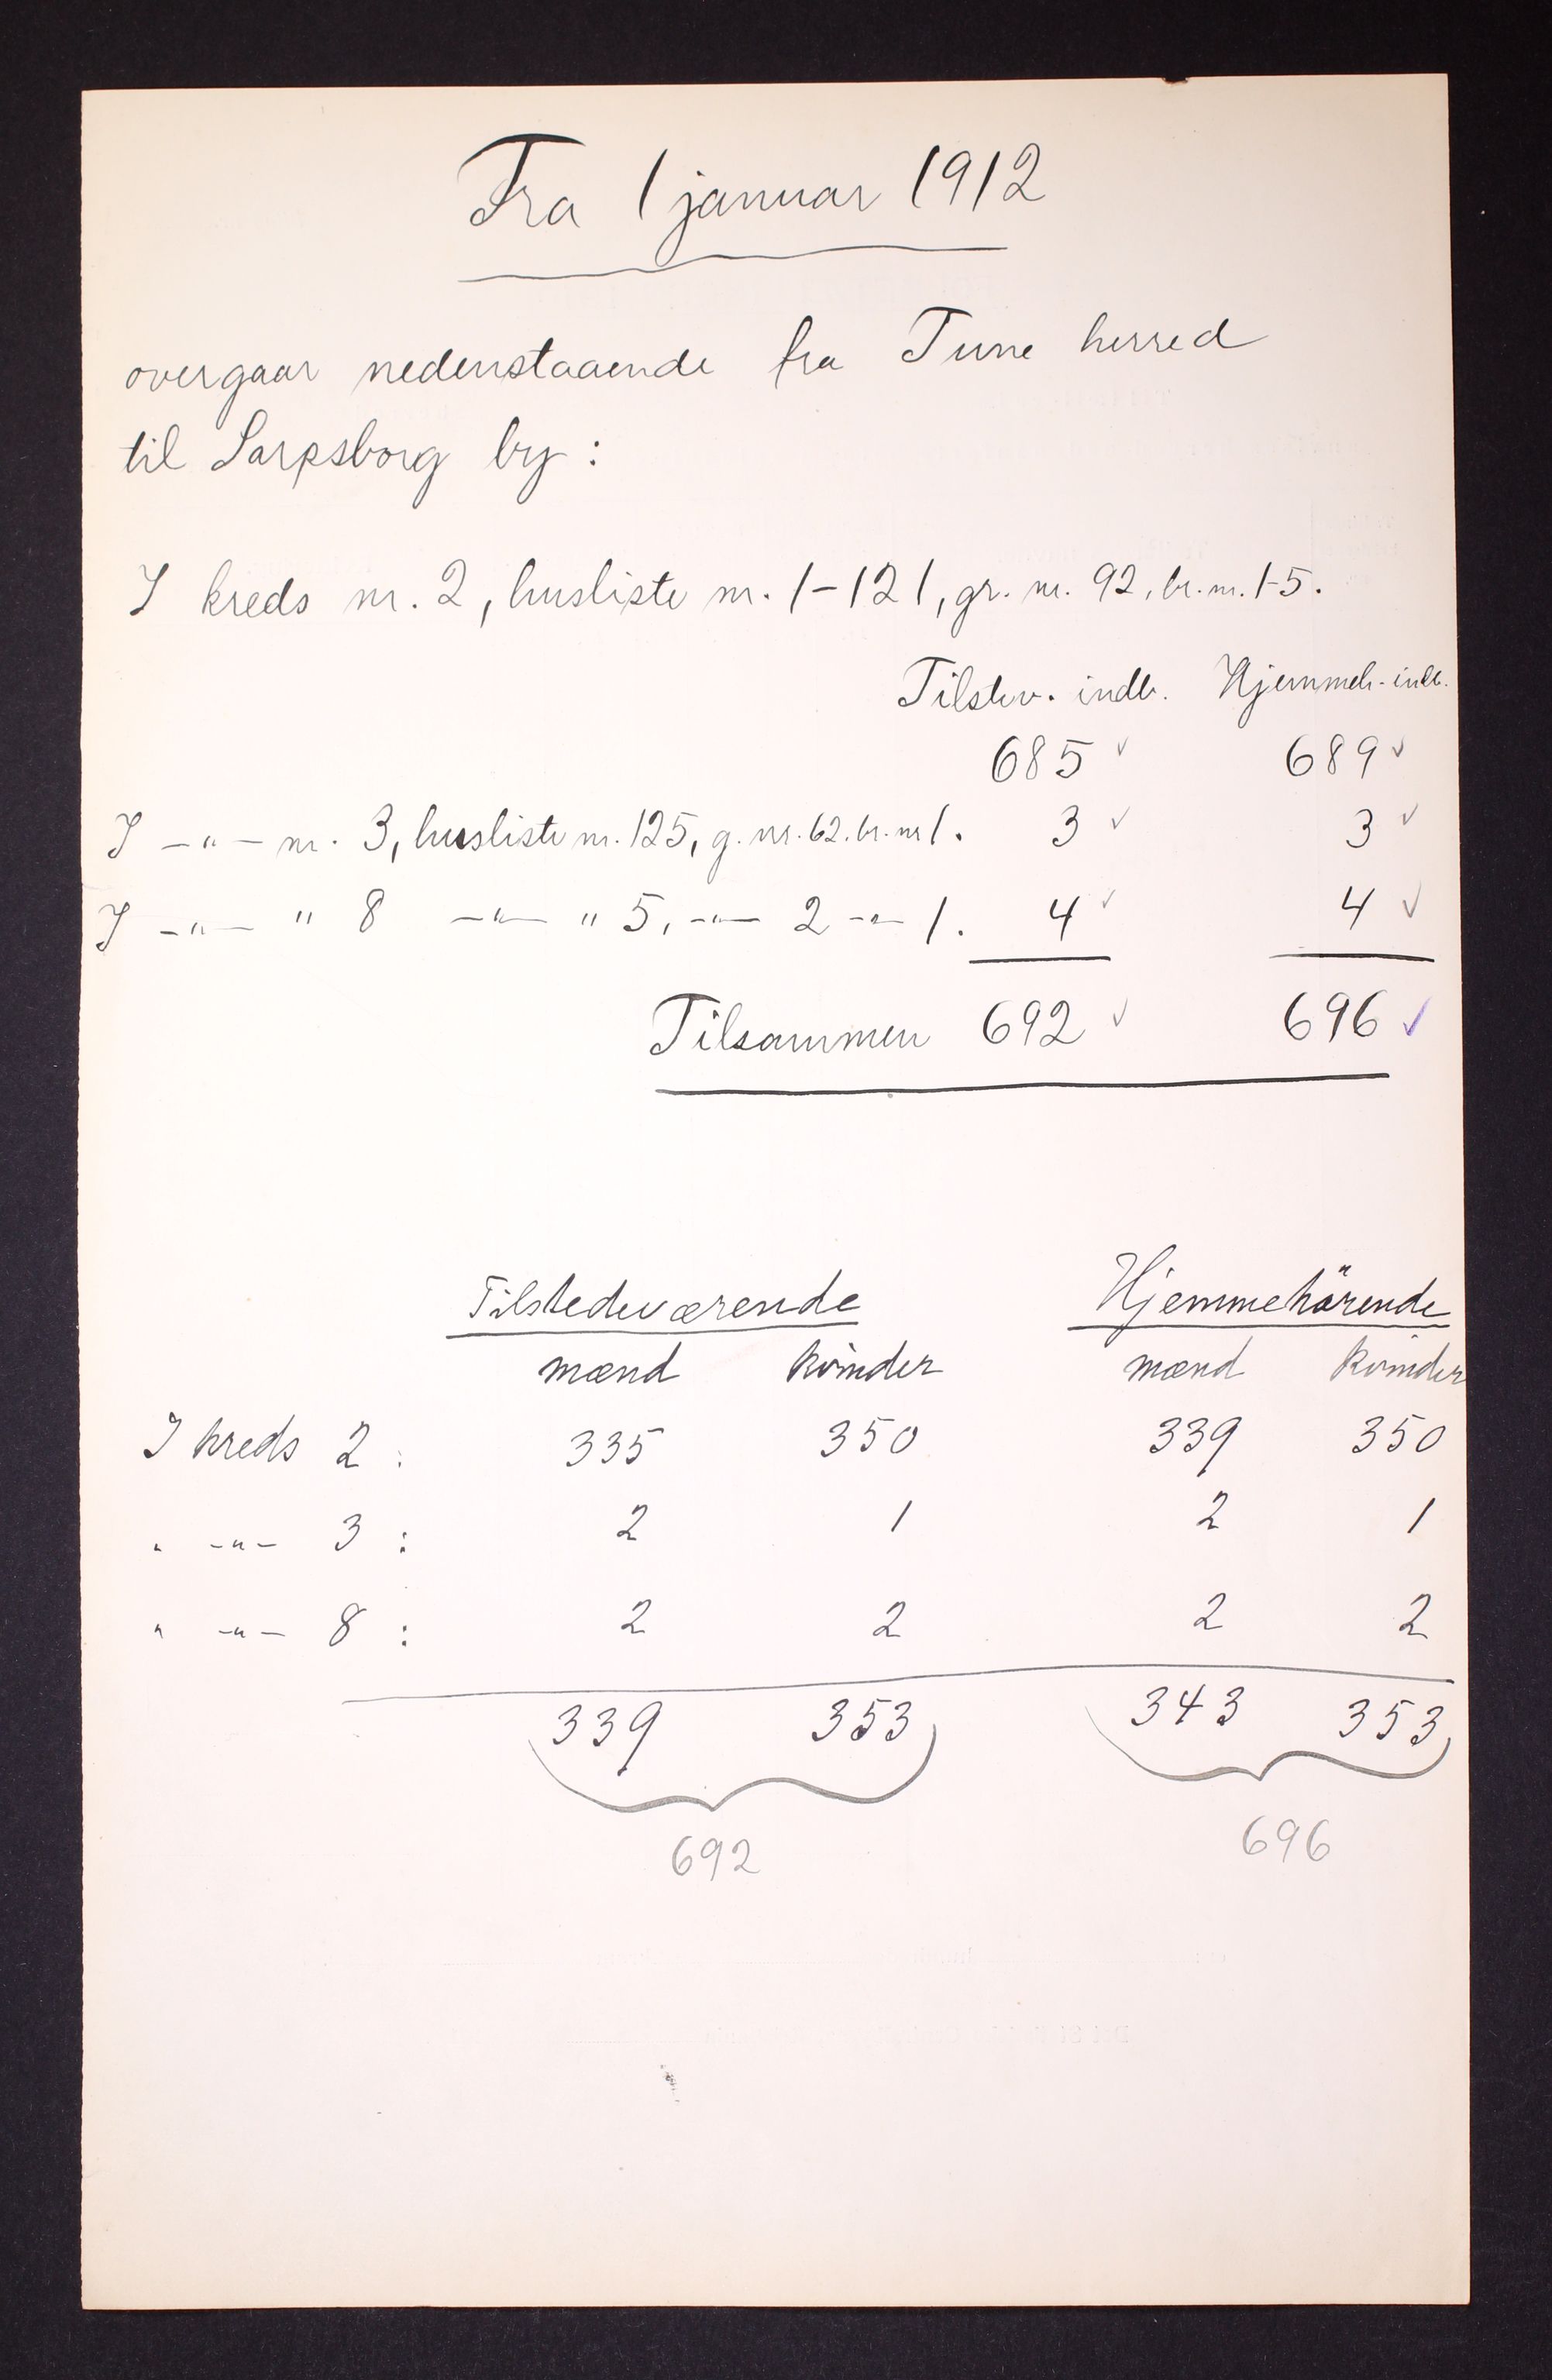 Fra 1 januar 1912
overgaar nedenstaaende fra Tune herred
til Sarpsborg by:
I kreds nr. 2, husliste nr. 1-121, gr. nr. 92, br. nr. 1-5.
Tilstev. indb. Hjemmeh. indb.
685 ✓ 689 ✓
I -"- nr. 3, husliste nr. 125, g. nr. 62. br. nr 1. 3 ✓ 3 ✓
I -"- " 8 -"- " 5, -"- 2 -"- 1. 4 ✓ 4 ✓
Tilsammen 692 ✓ 696 ✓
Tilstedeværende Hjemmehörende
mænd kvinder mænd kvinder
I kreds 2: 335 350 339 350
" -"- 3: 2 1 2 1
" -"- 8: 2 2 2 2
339 353 343 353
692 696